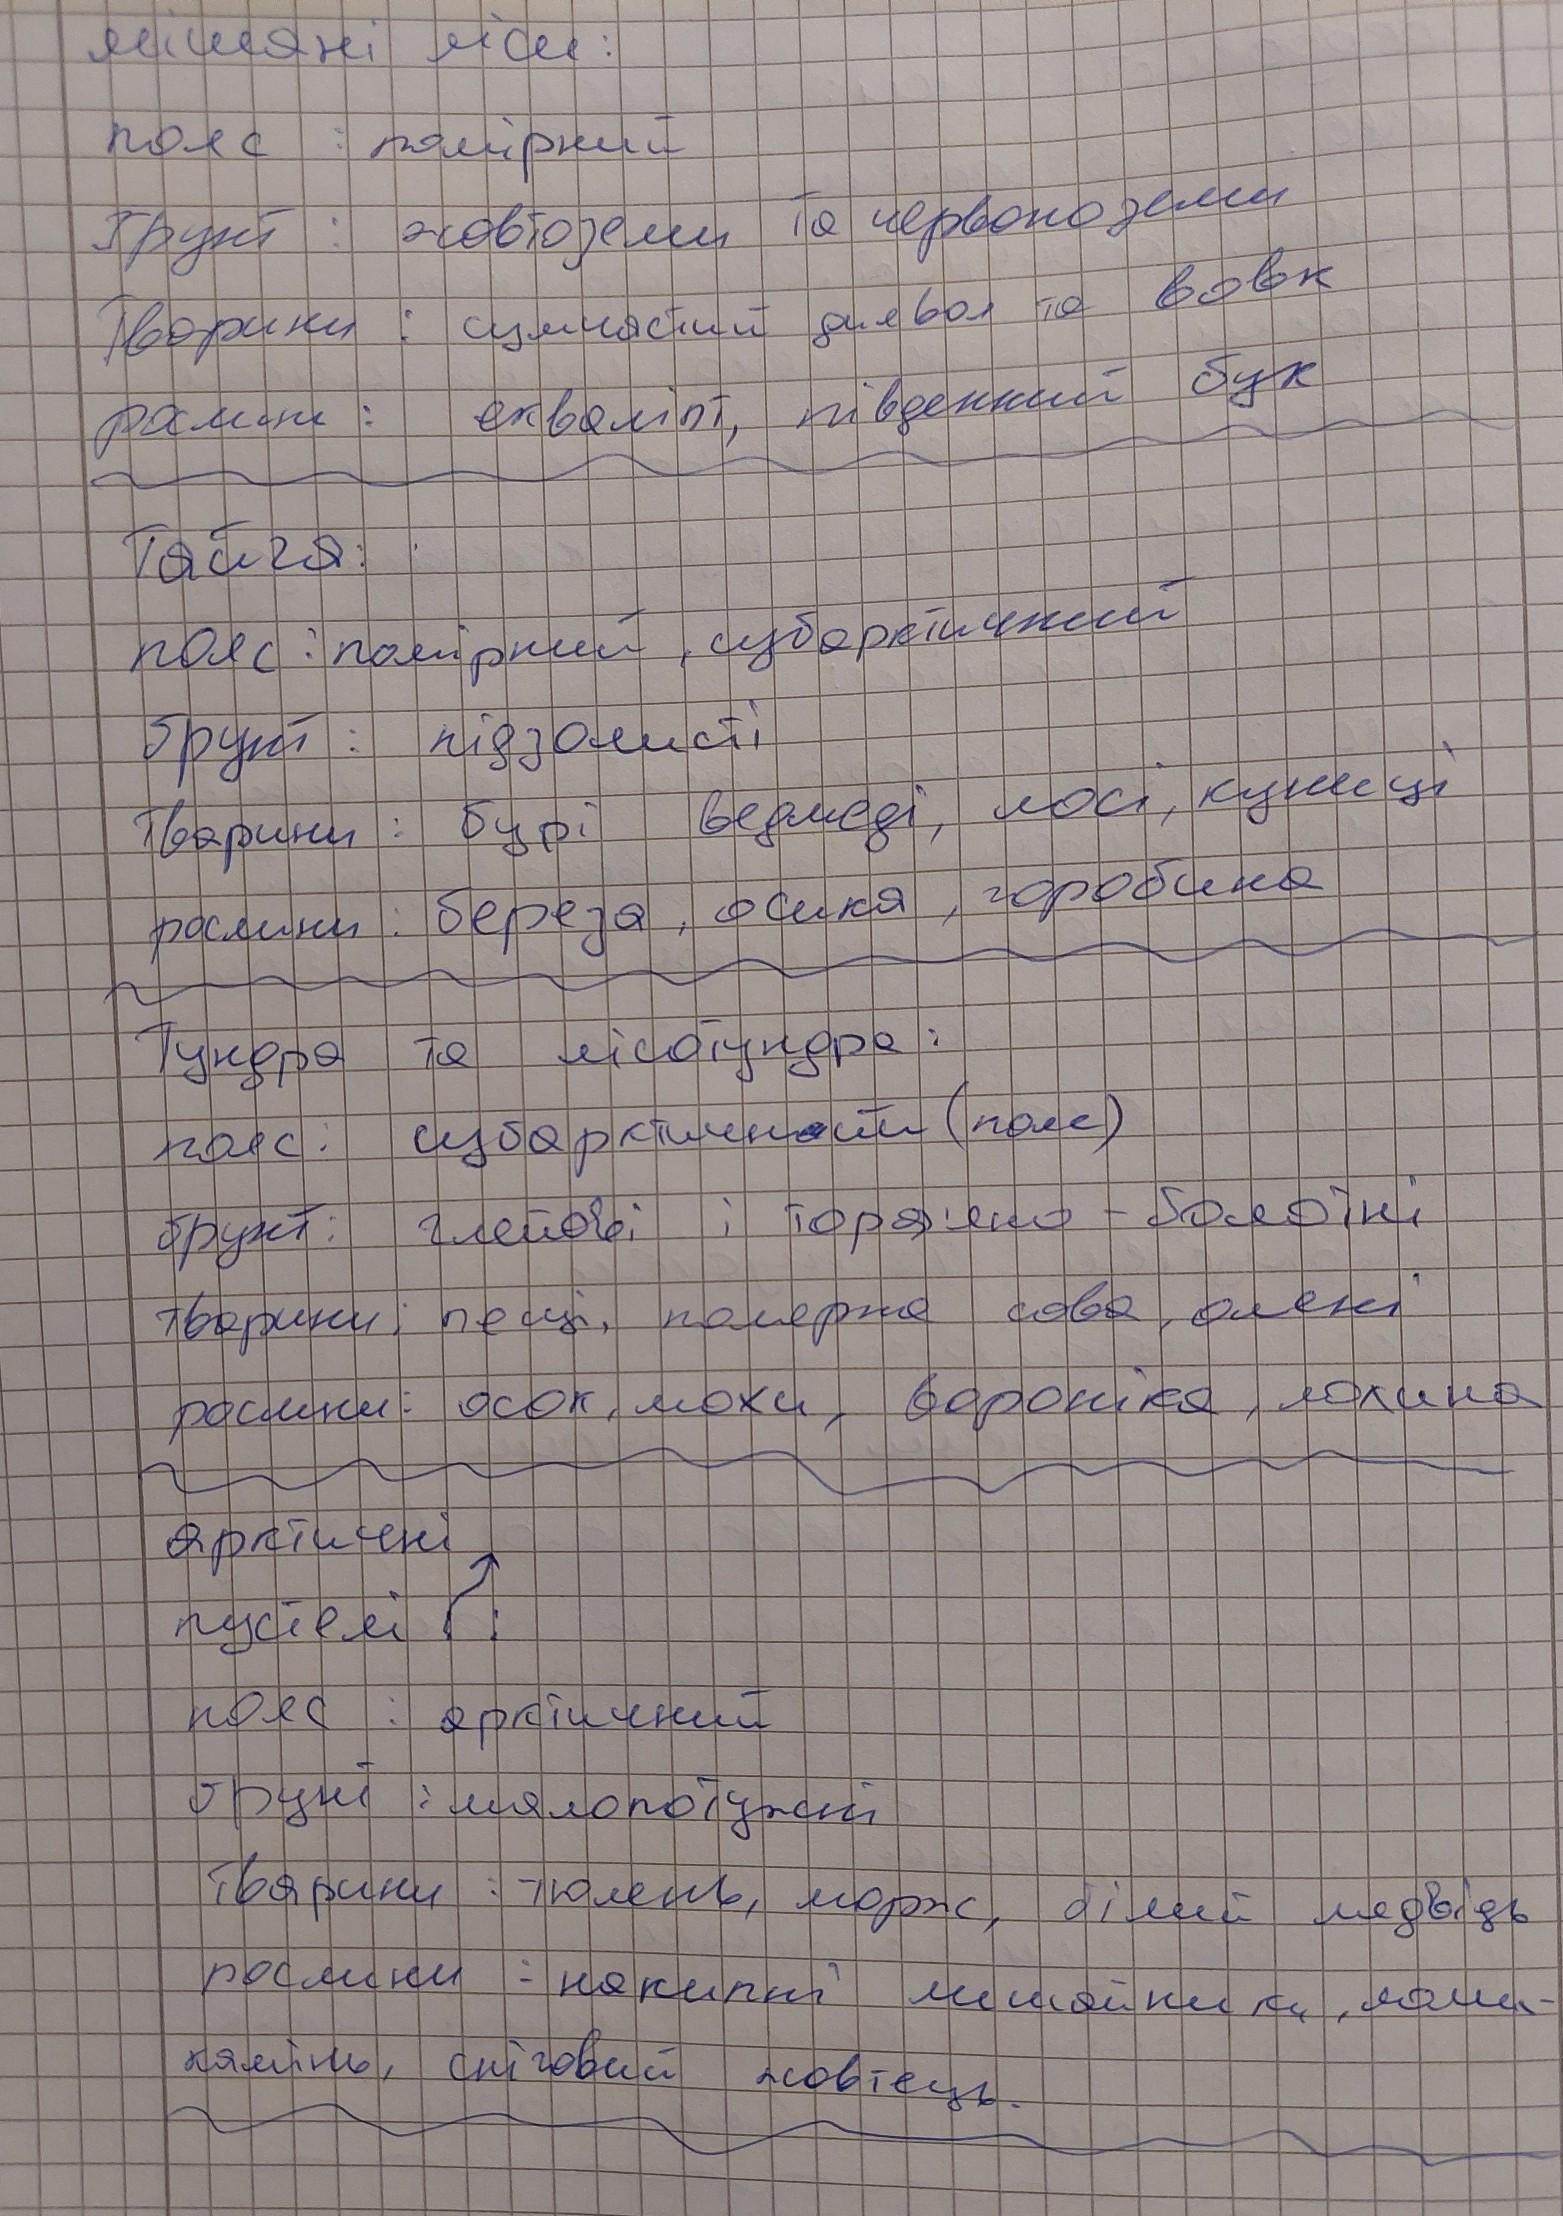 мішані ліси:
пояс : помірний
Ґрунт : жовтоземи та червоноземи
Тварини : сумчастий диявол та вовк
рослини : евкаліпт, південний бук
Тайга:
пояс : помірний, субарктичний
ґрунт : підзолисті
Тварини : бурі ведмеді, лосі, куниці
рослини : береза, осика, горобина
Тундра та лісотундра:
пояс: субарктичний (пояс)
ґрунт: глейові і торф'яно-болотні
тварини: песці, полярна сова, олені
рослини: осок, мохи, вороніка, лохина
арктичні
пустелі :
пояс : арктичний
ґрунт : малопотужні
Тварини : тюлень, морж, білий медвідь
рослини : накипні лишайники, ломи-
камінь, сніговий жовтець.